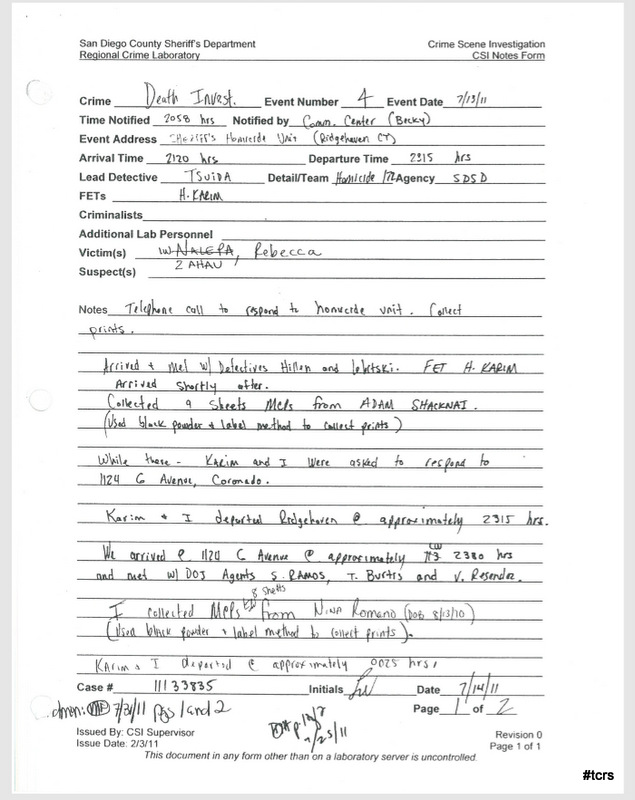 San Diego County Sheriff's Department Crime Scene Investigation
Regional Crime Laboratory CSI Notes Form
Crime Death Invest. Event Number 4 Event Date 7/13/11
Time Notified 2058 hrs Notified by Comm. Center (Becky)
Event Address Sheriff's Homicide Unit (Ridgehaven CT)
Arrival Time 2120 hrs Departure Time 2315 hrs
Lead Detective TSUIDA Detail/Team Homicide Agency SDSD
FETs H. KARIM
Criminalists
Additional Lab Personnel
Victim(s) NALEPA, Rebecca
ZAHAU
Suspect(s)
Notes Telephone call to respond to homicide unit. Collect
prints.
Arrived + met w/ Detectives Hillen and FET H. KARIM
Arrived shortly after.
Collected 9 sheets MCPs from ADAM SHACKNAI.
(Used black powder + label method to collect prints)
While there - KARIM and I were asked to respond to
1124 G Avenue, Coronado.
Karim + I departed Ridgehaven @ approximately 2315 hrs.
We arrived @ 1120 C Avenue @ approximately 2380 hrs
and met w/ DOJ Agents S. RAMOS, T. Burtis and V. Resendez.
8 sheets
I collected MCPs from NINA Romano (DOB 8/13/10)
(Used black powder + label method to collect prints).
KARIM + I departed @ approximately 0025 hrs.
Case # 11133835 Initials Date 7/14/11
Page 1 of 2
7/21/11 pgs 1 and 2
7/25/11
Issued By: CSI Supervisor Revision 0
Issue Date: 2/3/11 Page 1 of 1
This document in any form other than on a laboratory server is uncontrolled.
#tcrs